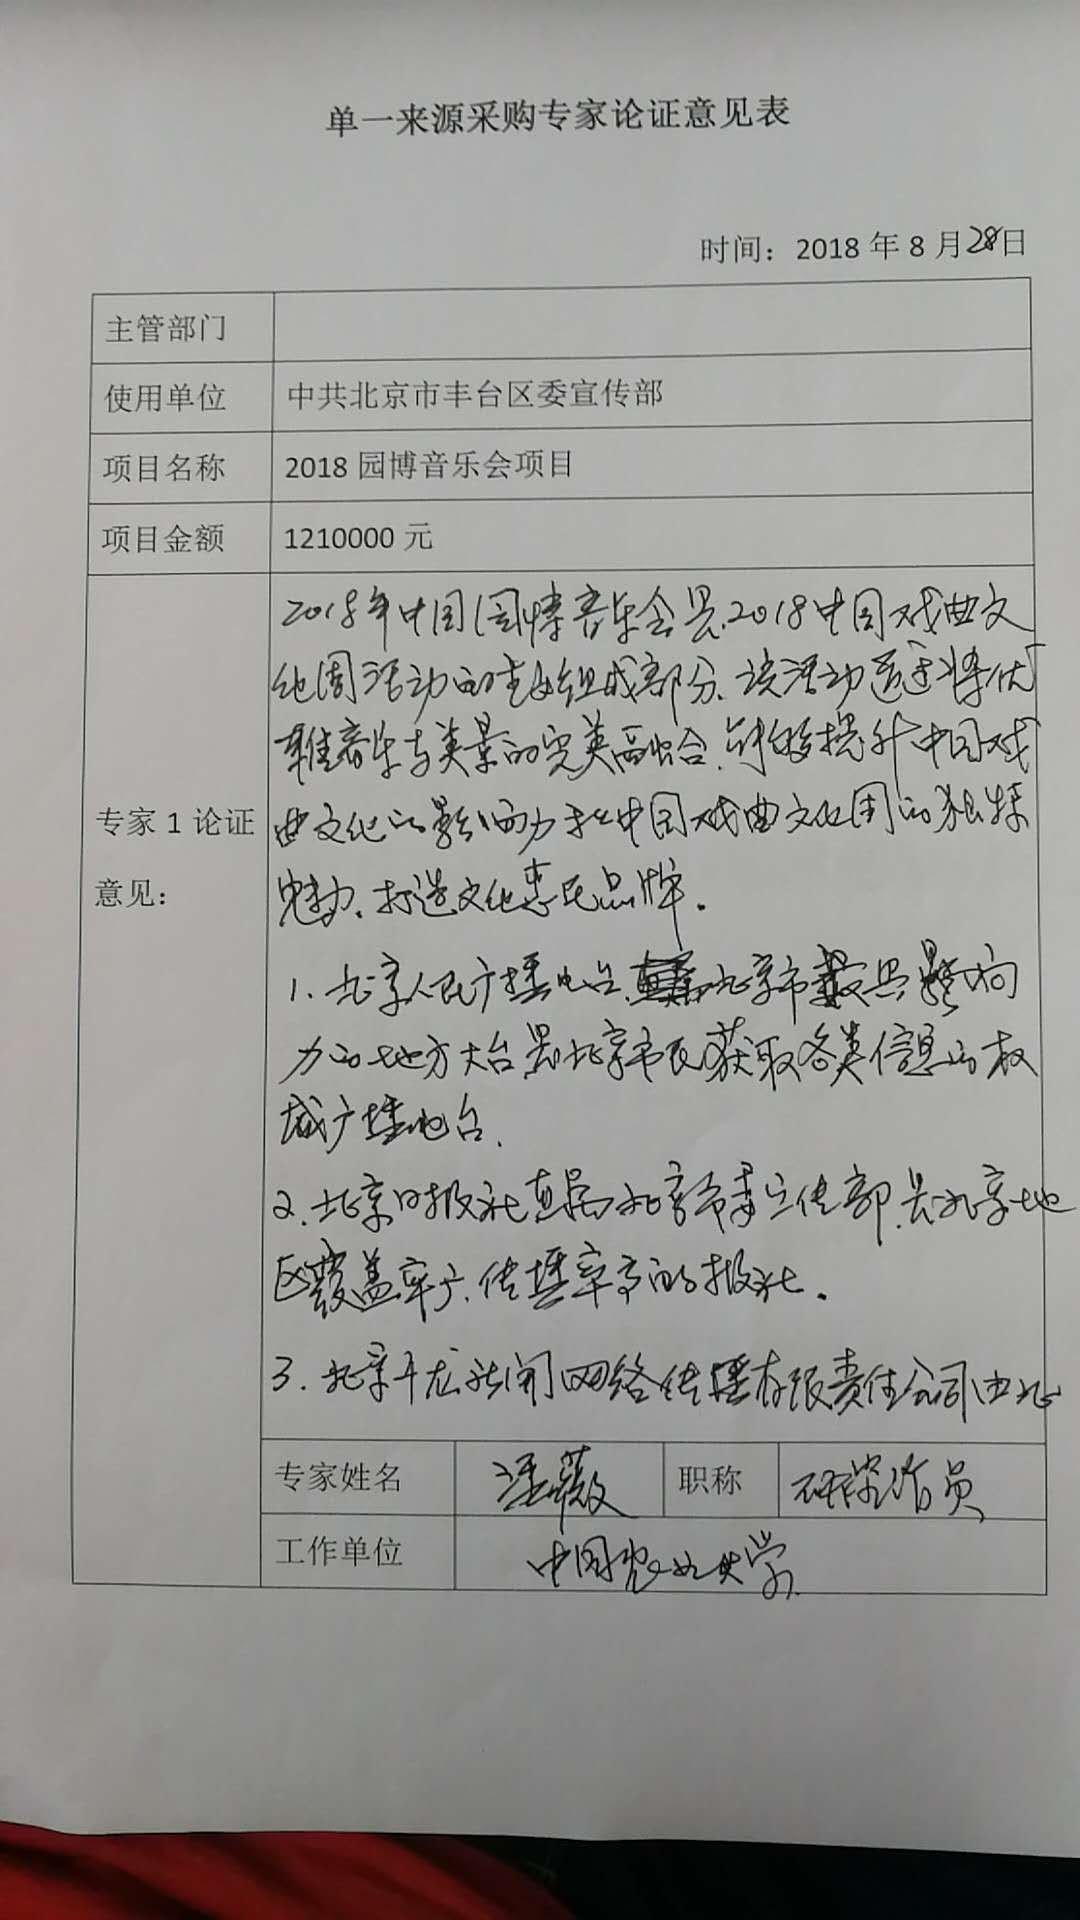 单一来源采购专家论证意见表
时间：2018年8月28日
主管部门
使用单位 中共北京市丰台区委宣传部
项目名称 2018园博音乐会项目
项目金额 1210000元
专家1论证
意见：
2018年中国园博音乐会是2018中国戏曲文
化周活动的重要组成部分、该活动通过将优
雅音乐与美景的完美融合、能够提升中国戏
曲文化的影响力和中国戏曲文化周的独特
魅力、打造文化惠民品牌。
1.北京人民广播电台、北京市最具影响
力的地方大台是北京市民获取各类信息的权
威广播电台.
2.北京日报社直属北京市委宣传部、是北京地
区覆盖率广、传播率高的报社。
3.北京千龙新闻网络传播有限责任公司由北
专家姓名 汪薇 职称 研究员
工作单位 中国农业大学